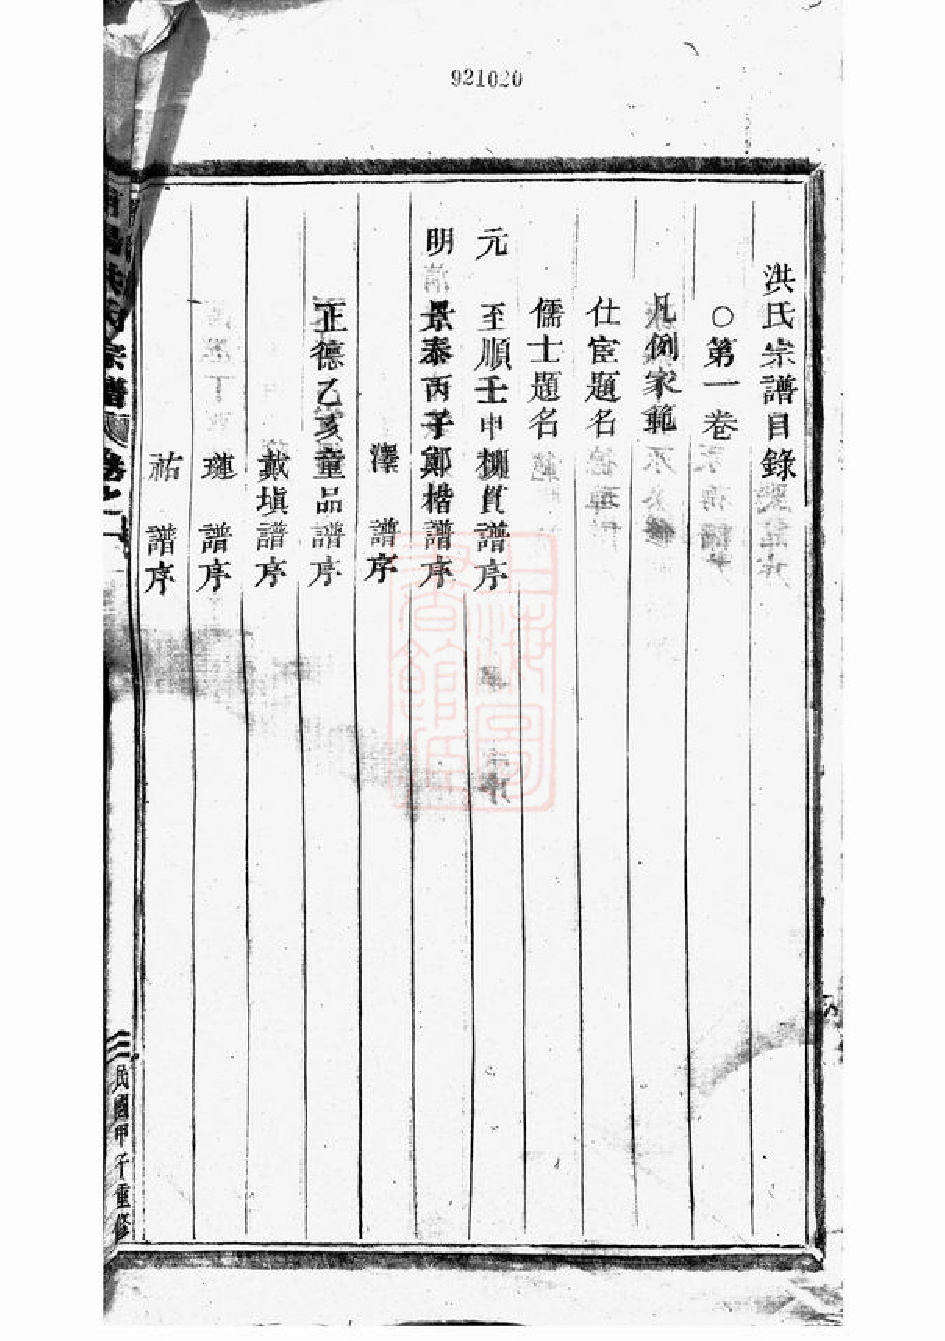 921020
洪氏宗譜目錄
○第一卷
凡例家範
仕宦題名
儒士題名
元 至順壬申柳貫譜序
明 景泰丙子鄭楷譜序
澤 譜序
正德乙亥童品譜序
戴塤譜序
璉 譜序
祐 譜序
洪氏宗譜 卷之一
民國甲子重修
上海圖書館藏